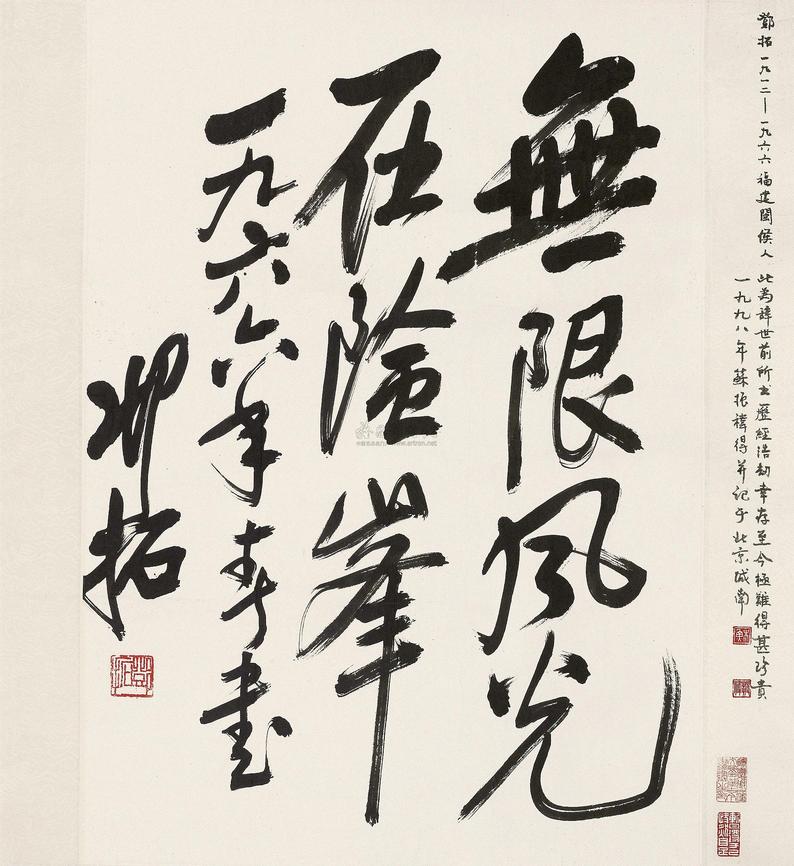 鄧拓一九一二—一九六六福建閩侯人 此為辭世前所書歷經浩劫幸存至今極難得甚珍貴
一九九八年蘇振禕得并記于北京城南
無限風光
在險峯
一九六六年春書
鄧拓